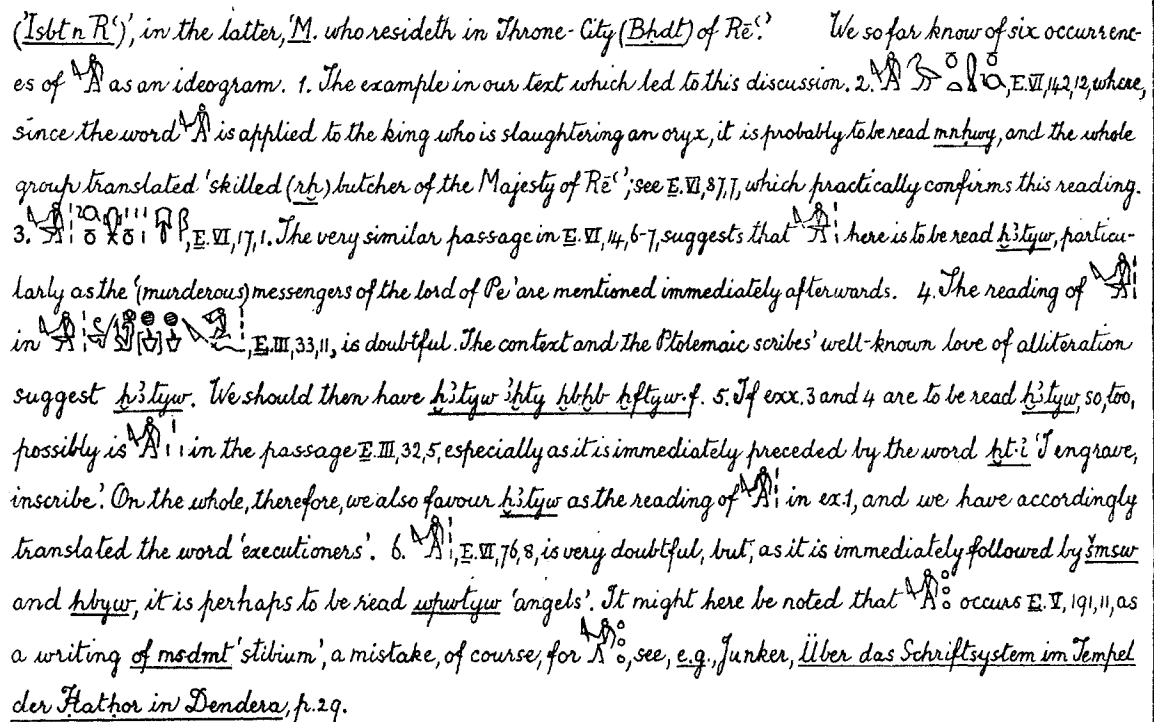 ('Isbt n Rʿ)', in the latter, 'M. who resideth in Throne-City (Bḥdt) of Rēʿ.' We so far know of six occurrenc-
es of as an ideogram. 1. The example in our text which led to this discussion. 2. , E. VI, 142, 12, where,
since the word is applied to the king who is slaughtering an oryx, it is probably to be read mnḥwy, and the whole
group translated 'skilled (rḫ) butcher of the Majesty of Rēʿ'; see E. VI, 87, 7, which practically confirms this reading.
3. , E. VI, 17, 1. The very similar passage in E. VI, 14, 6-7, suggests that here is to be read ḫꜣtyw, particu-
larly as the '(murderous) messengers of the lord of Pe' are mentioned immediately afterwards. 4. The reading of
in , E. III, 33, 11, is doubtful. The context and the Ptolemaic scribes' well-known love of alliteration
suggest ḫꜣtyw. We should then have ḫꜣtyw ꜣḫty ḫbḫb ḫftyw·f. 5. If exx. 3 and 4 are to be read ḫꜣtyw, so, too,
possibly is in the passage E. III, 32, 5, especially as it is immediately preceded by the word ḫt·i 'I engrave,
inscribe'. On the whole, therefore, we also favour ḫꜣtyw as the reading of in ex. 1, and we have accordingly
translated the word 'executioners'. 6. , E. VI, 76, 8, is very doubtful, but, as it is immediately followed by šmsw
and hbyw, it is perhaps to be read wpwtyw 'angels'. It might here be noted that occurs E. V, 191, 11, as
a writing of msdmt 'stibium', a mistake, of course, for , see, e.g., Junker, Über das Schriftsystem im Tempel
der Hatḥor in Dendera, p. 29.